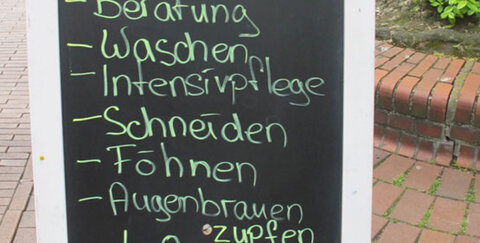 - Beratung
- Waschen
- Intensivpflege
- Schneiden
- Föhnen
- Augenbrauen
zupfen